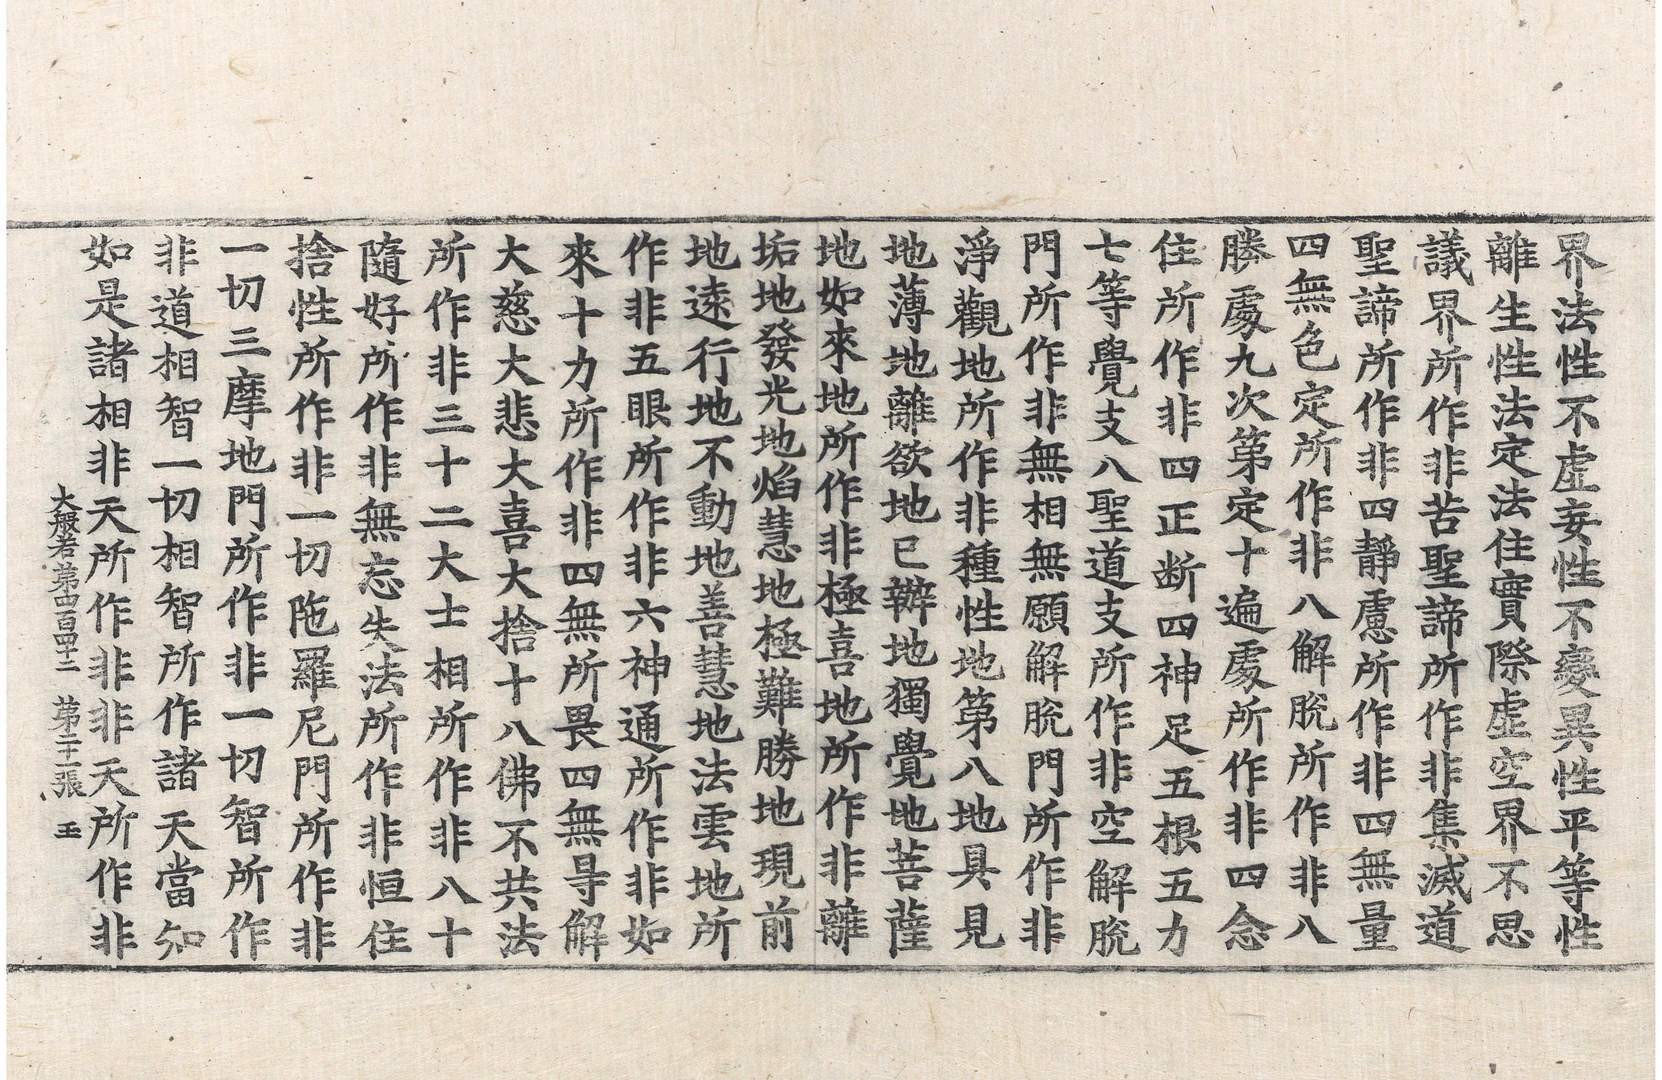 界法性不虛妄性不變異性平等性
離生性法定法住實際虛空界不思
議界所作非苦聖諦所作非集滅道
聖諦所作非四靜慮所作非四無量
四無色定所作非八解脫所作非八
勝處九次第定十遍處所作非四念
住所作非四正断四神足五根五力
七等覺支八聖道支所作非空解脫
門所作非無相無願解脫門所作非
淨觀地所作非種性地第八地具見
地薄地離欲地已辦地獨覺地菩薩
地如來地所作非極喜地所作非離
垢地發光地焰慧地極難勝地現前
地遠行地不動地善慧地法雲地所
作非五眼所作非六神通所作非如
來十力所作非四無所畏四無㝵解
大慈大悲大喜大捨十八佛不共法
所作非三十二大士相所作非八十
隨好所作非無忘失法所作非恒住
捨性所作非一切陁羅尼門所作非
一切三摩地門所作非一切智所作
非道相智一切相智所作諸天當知
如是諸相非天所作非非天所作非
大般若第四百四十二 第二十一張 玉